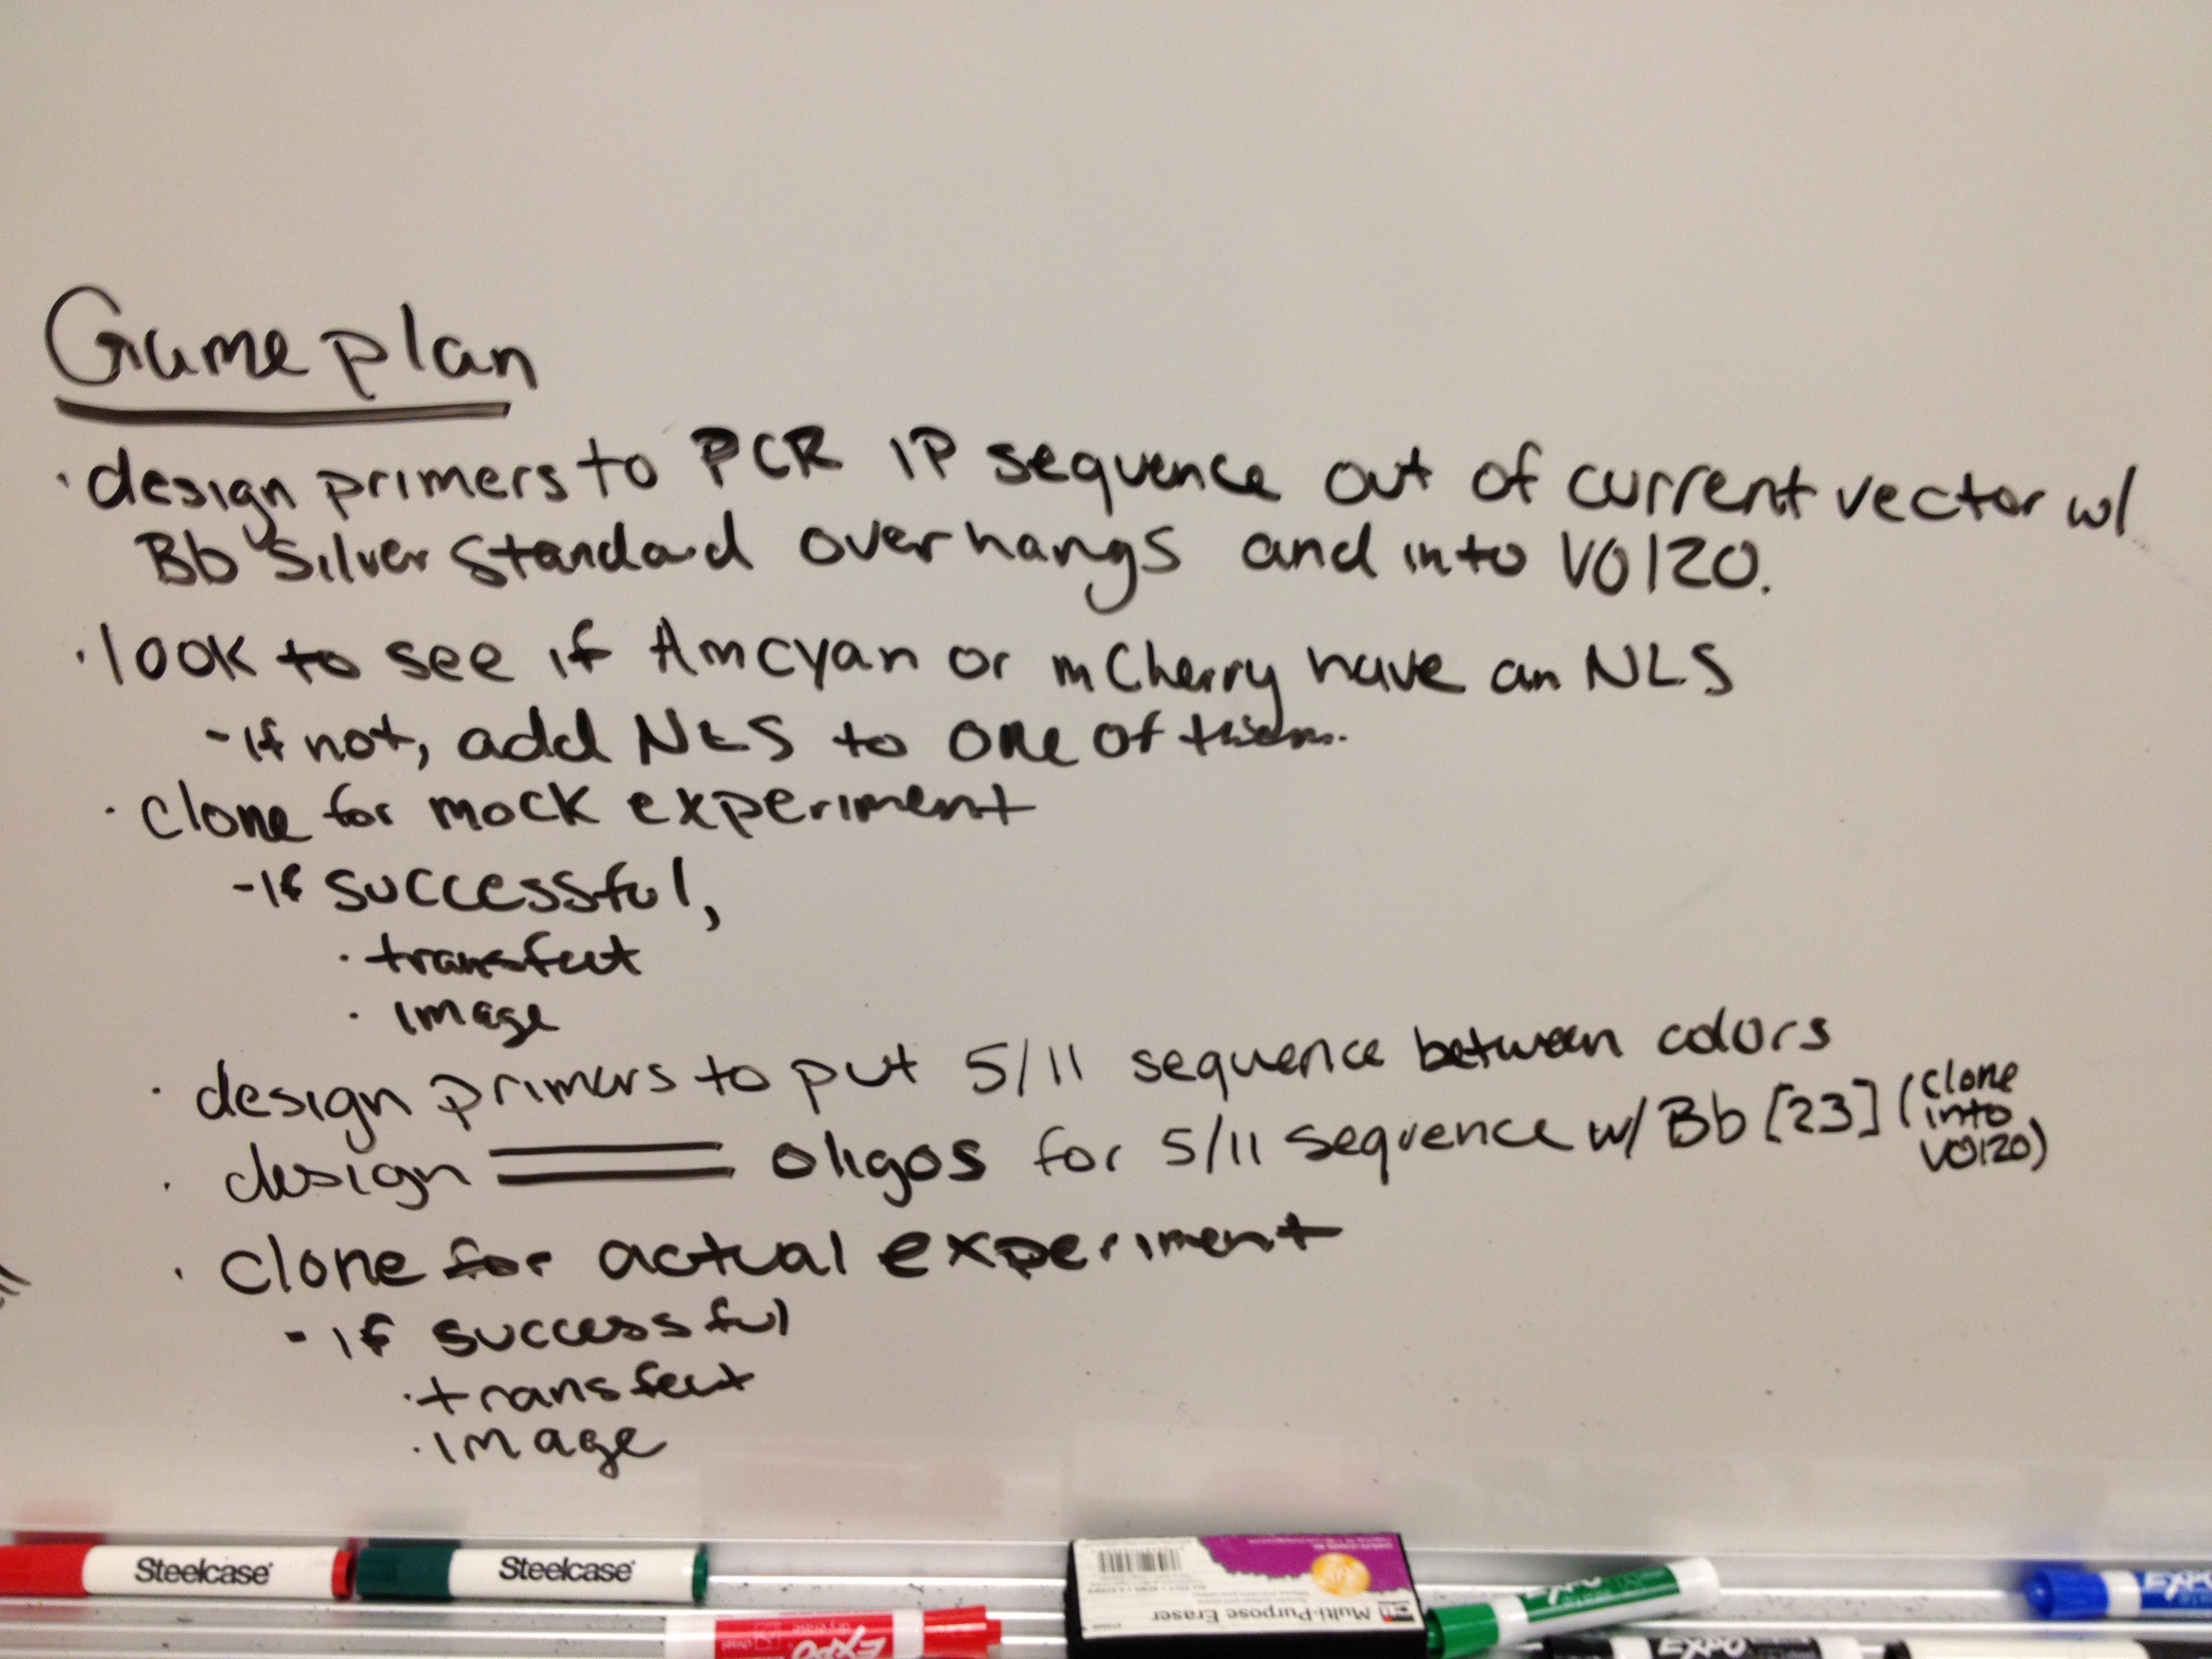 Game plan
· design primers to PCR IP sequence out of current vector w/
Bb Silver Standard overhangs and into V0120.
· look to see if Amcyan or mCherry have an NLS
- if not, add NLS to one of them.
· clone for mock experiment
- If successful,
· transfect
· image
· design primers to put 5/11 sequence between colors
· design == oligos for 5/11 sequence w/ Bb [23] (clone
into
V0120)
· clone for actual experiment
- if successful
· transfect
· image
Steelcase
Steelcase
EXPO
Multi-Purpose Eraser
EXPO
EXPO
EXPO